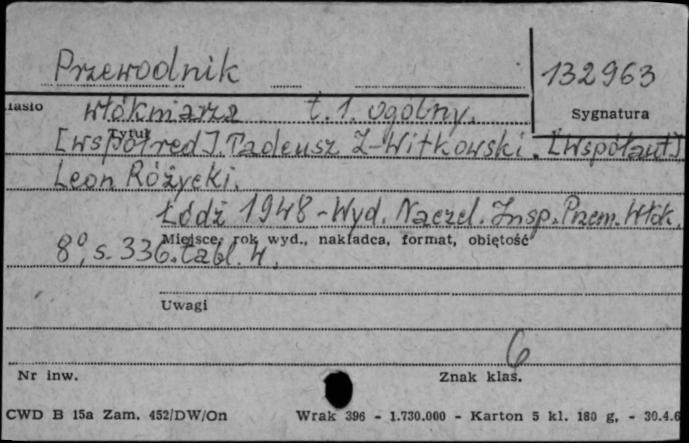 Przewodnik
132963
Hasło
włókniarza t.1. ogólny.
Sygnatura
Tytuł
[współred]. Tadeusz Ż-Witkowski. [współaut]
Leon Różycki.
Łódź 1948 - Wyd. Naczel. Insp. Przem. Włók.
Miejsce, rok wyd., nakładca, format, objętość
8°, s. 336. tabl. 4.
Uwagi
6
Nr inw.
Znak klas.
CWD B 15a Zam. 452/DW/On Wrak 396 - 1.730.000 - Karton 5 kl. 180 g. - 30.4.6